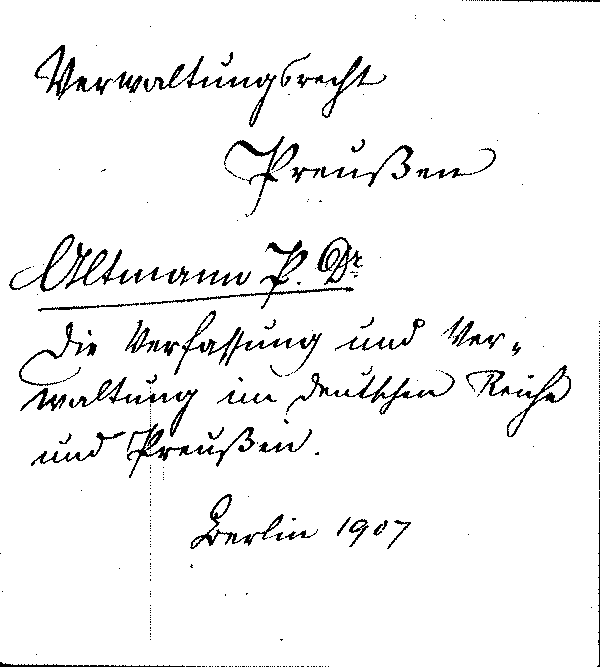 Verwaltungsrecht
Preußen
Altmann P. Dr.
Die Verfassung und Ver-
waltung im deutschen Reiche
und Preußen.
Berlin 1907